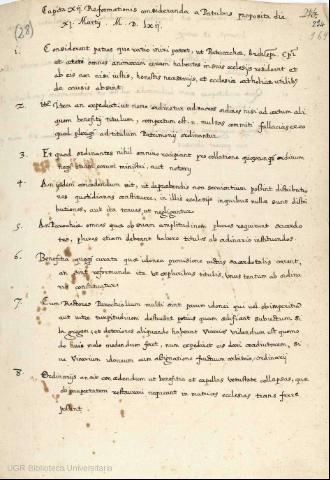 (28)
Capita xij Reformationis consideranda a Patribus proposita die
XI. Martij. M. D. lxij.
1. Considerent patres quae ratio iniri possit, ut Patriarchae, Archiepi, Epi
et caeteri omnes animarum curam habentes in suis ecclesijs resideant et
ab eis non nisi iustis, honestis necessarijs, et ecclesiae catholicae utilibus
de causis absint.
2. an expediat, ut nemo ordinetur ad sacros ordines nisi ad certum ali
quem beneficij titulum, compertum est n. multas committi fallacias ex eo
quod plerique ad titulum Patrimonij ordinantur.
3. Et quod ordinantes nihil omnino recipiant pro collatione quorumcumque ordinum
neque etiam eorum ministri, aut notarij
4. An concedendum sit, ut praebendis non possint distributio
nes quotidianas constituere, in illis ecclesijs in quibus nullae sunt distri
butiones, aut ita tenues, ut negligantur
5. An Parochiae omnes quae ob suam amplitudinem plures requirunt sacerdo
tes, plures etiam debeant habere titulos ab ordinarijs instituendos.
6. Beneficia quoque curata quae idonea provisione victus sacerdotalis carent,
an sint reformanda ita ut ex pluribus titulis, unus tantum ab ordina
rijs constituatur
7. Cum Rectores Parochialium multi sint parum idonei qui vel ob imperitiam
aut vitae turpitudinem destruant potius quam aedificent subiectum si
bi gregem, et deteriores aliquando habeant Vicarios videndum est quomo
do huic malo medendum sit, num expediat eis dari coadiutorem, si
ve Vicarium idoneum cum assignatione fructuum arbitrio, ordinarij
8. Ordinarijs an sit concedendum ut beneficia et capellas vetustate collapsas, quae
ob paupertatem restaurari nequeant in matrices ecclesias transferre
possint.
UGR Biblioteca Universitaria